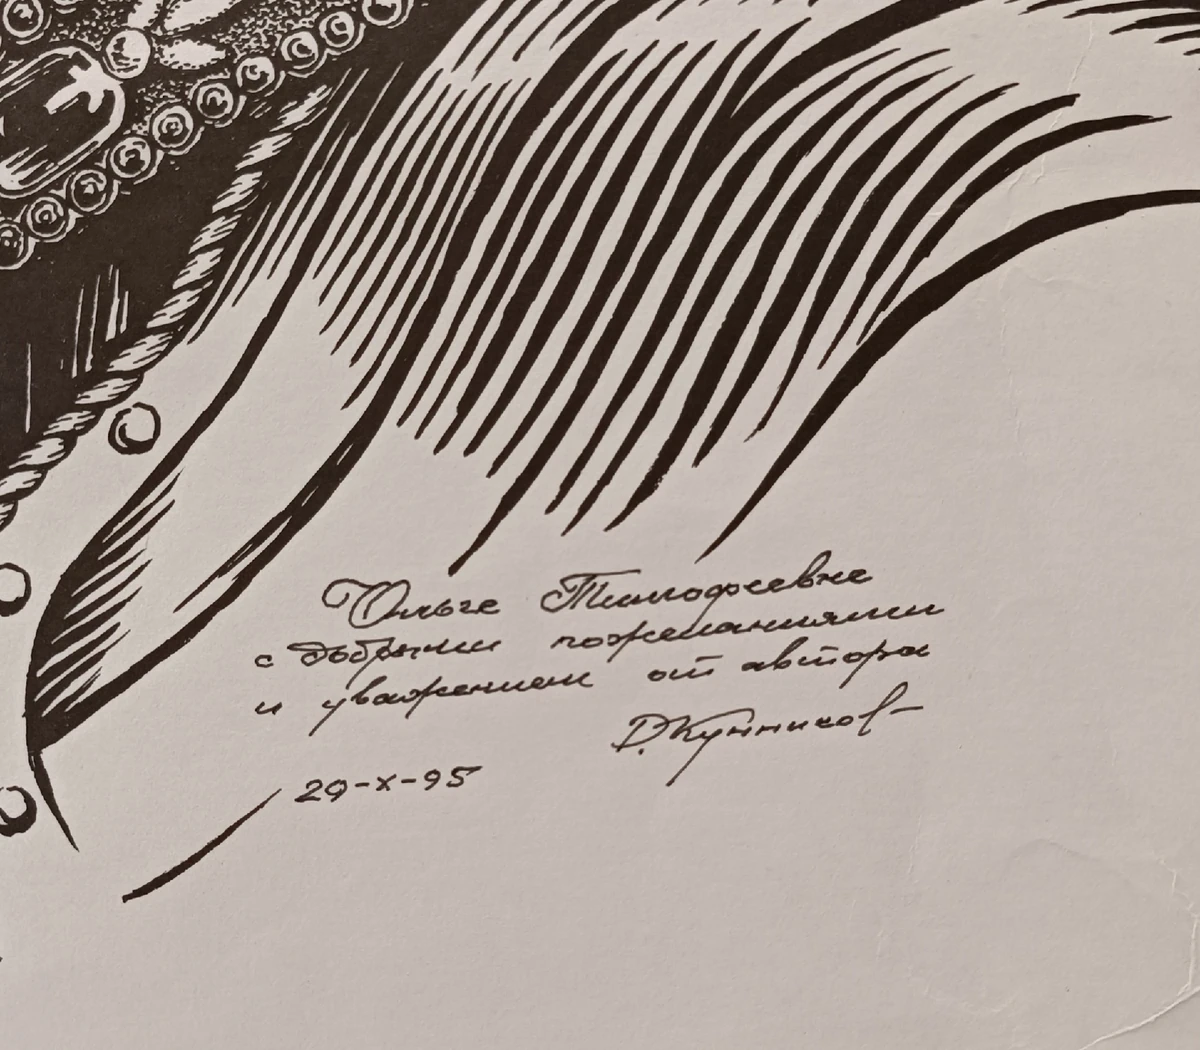 Ольге Тимофеевне
с добрыми пожеланиями
и уважением от автора
Р. Кунников
29-X-95